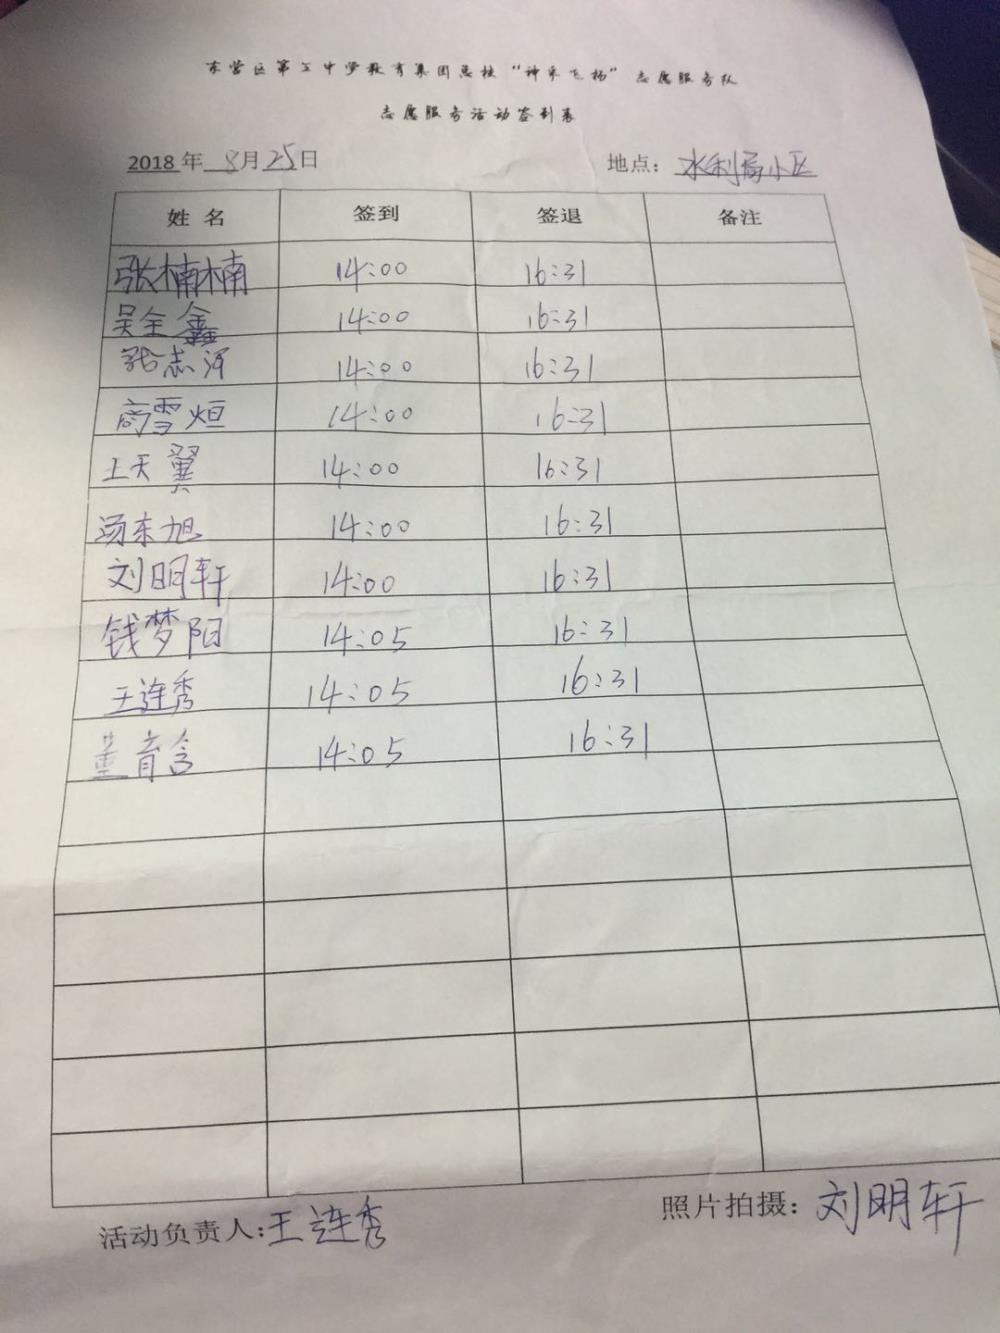 东营区第三中学教育集团总校“神采飞杨”志愿服务队
志愿服务活动签到表
2018年 8月25日 地点：水利局小区
姓 名 签到 签退 备注
张楠楠 14:00 16:31
吴全鑫 14:00 16:31
张志河 14:00 16:31
商雪烜 14:00 16:31
王天翼 14:00 16:31
汤东旭 14:00 16:31
刘明轩 14:00 16:31
钱梦阳 14:05 16:31
王连秀 14:05 16:31
董育含 14:05 16:31
活动负责人:王连秀 照片拍摄：刘明轩